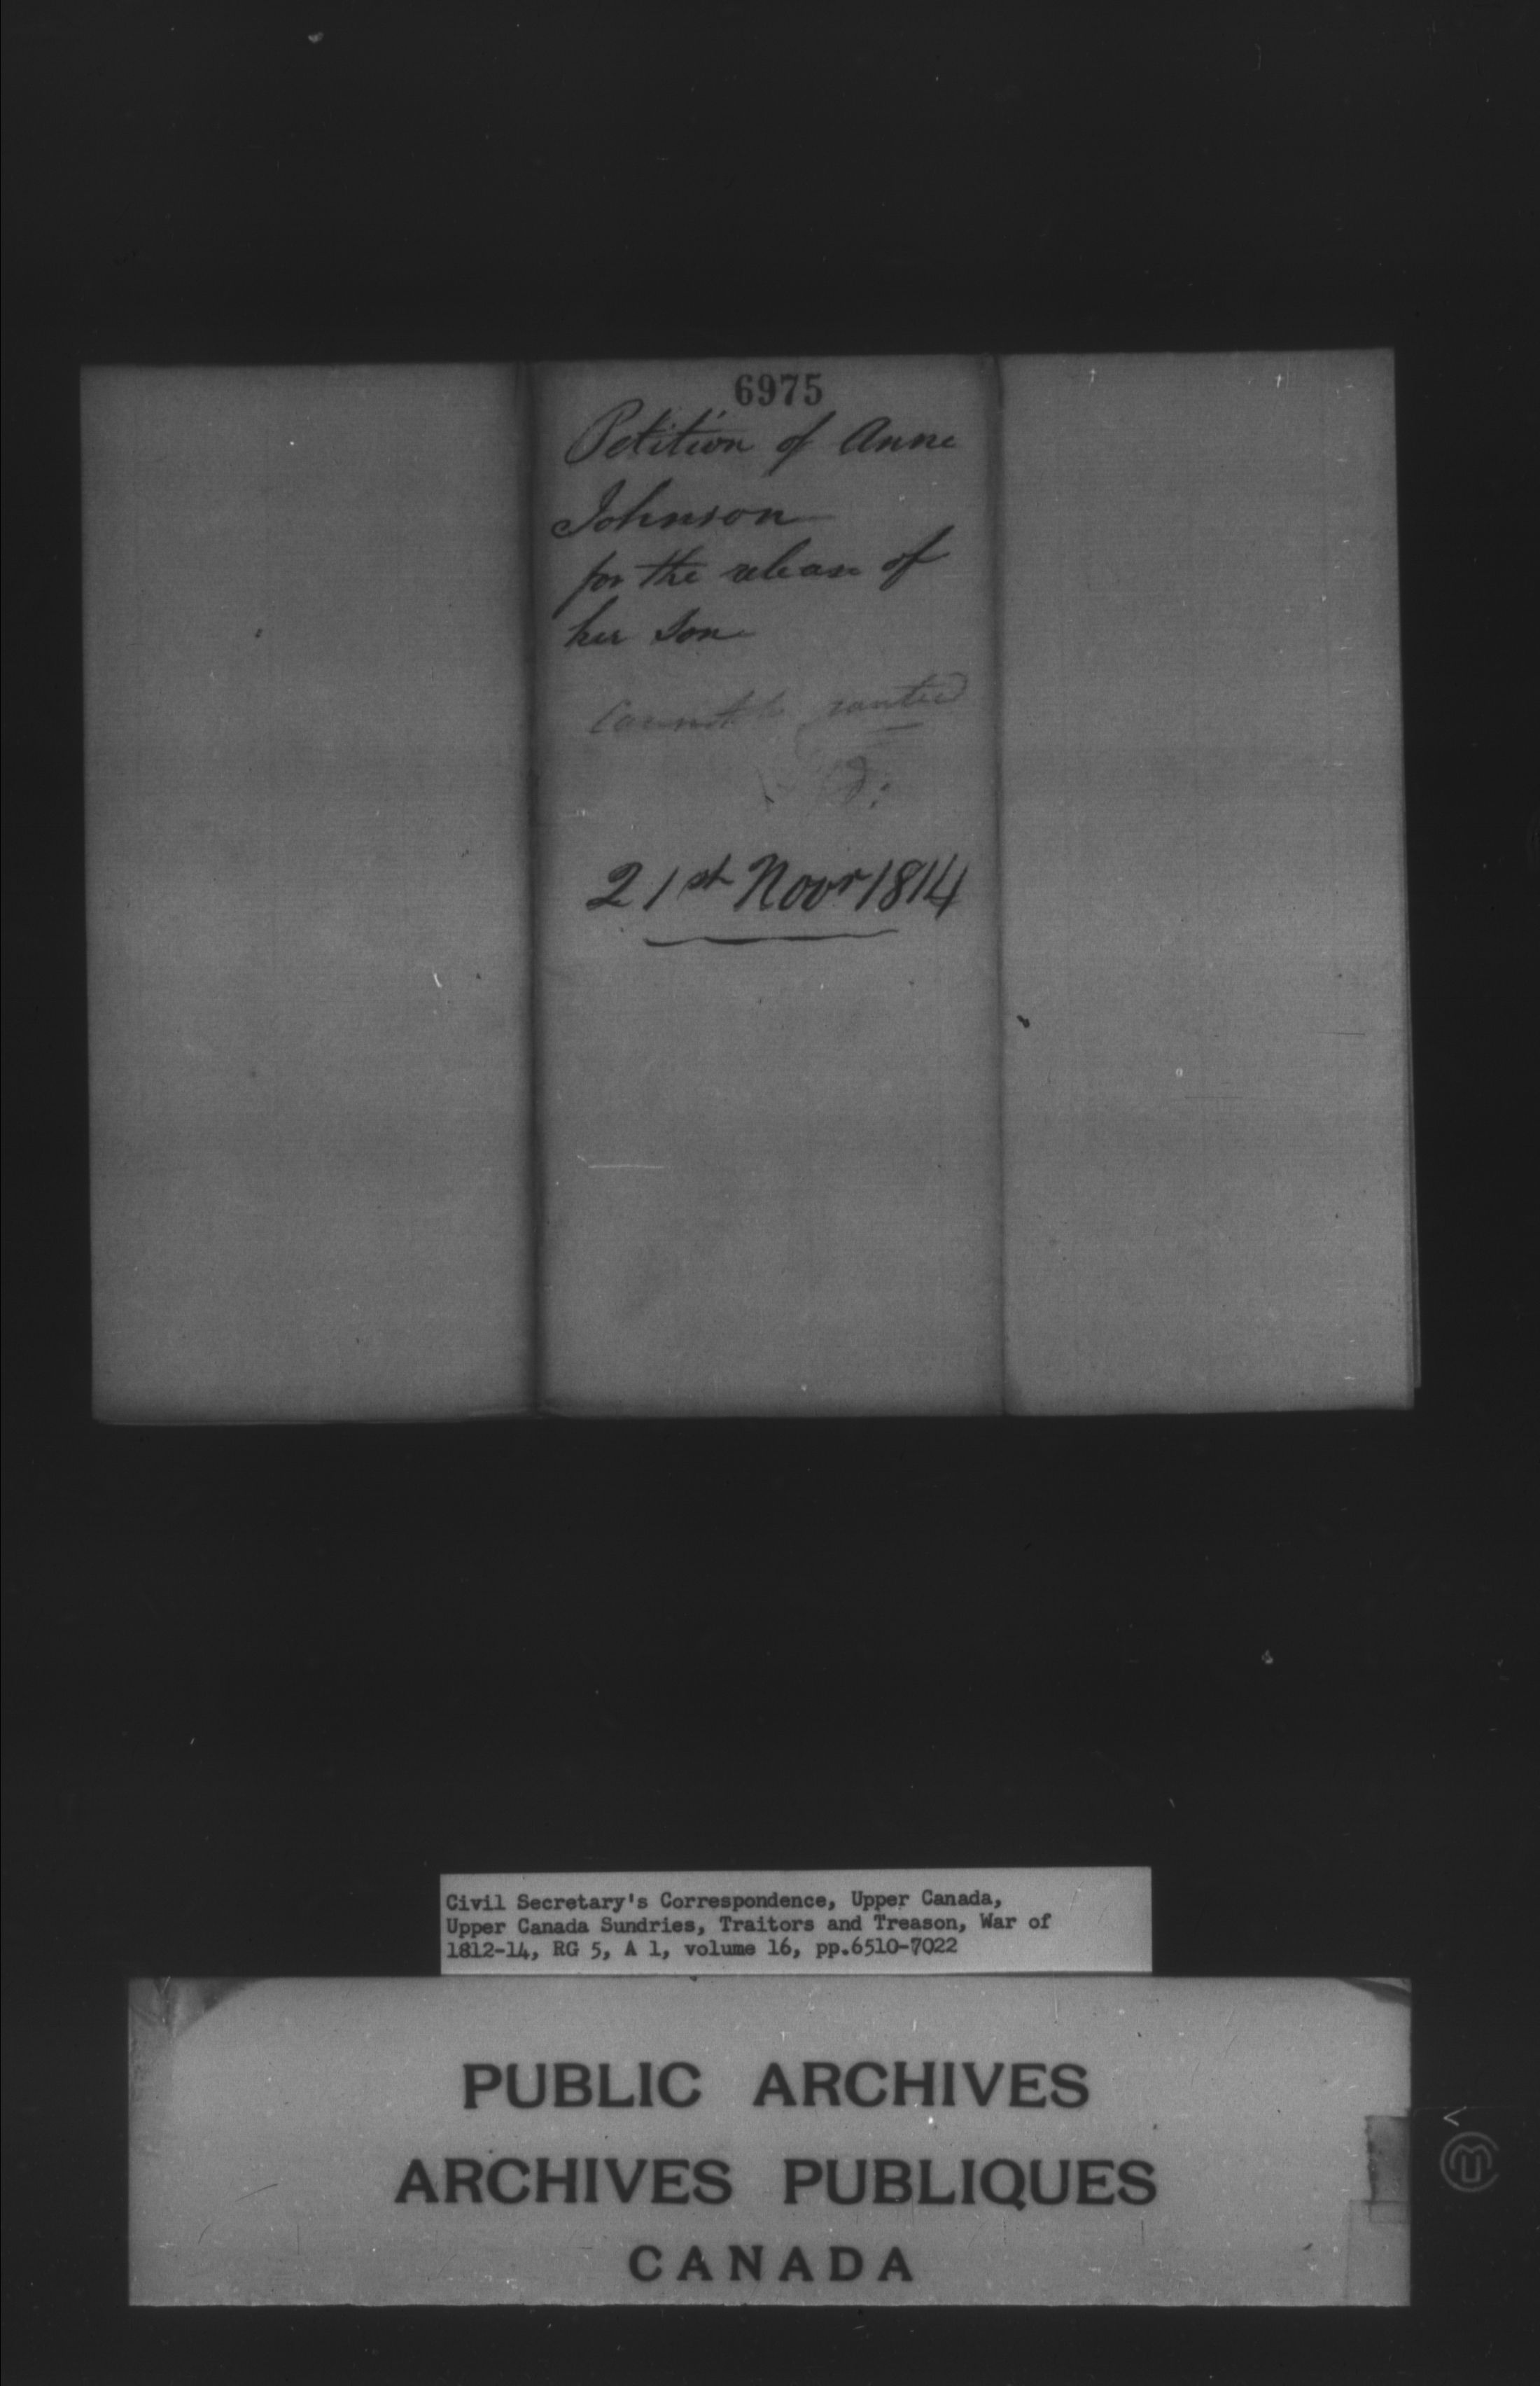 6975
Petition of Anne
Johnson
for the release of
her son
Cannot be granted
21st Novr 1814
Civil Secretary's Correspondence, Upper Canada,
Upper Canada Sundries, Traitors and Treason, War of
1812-14, RG 5, A 1, volume 16, pp.6510-7022
PUBLIC ARCHIVES
ARCHIVES PUBLIQUES
CANADA